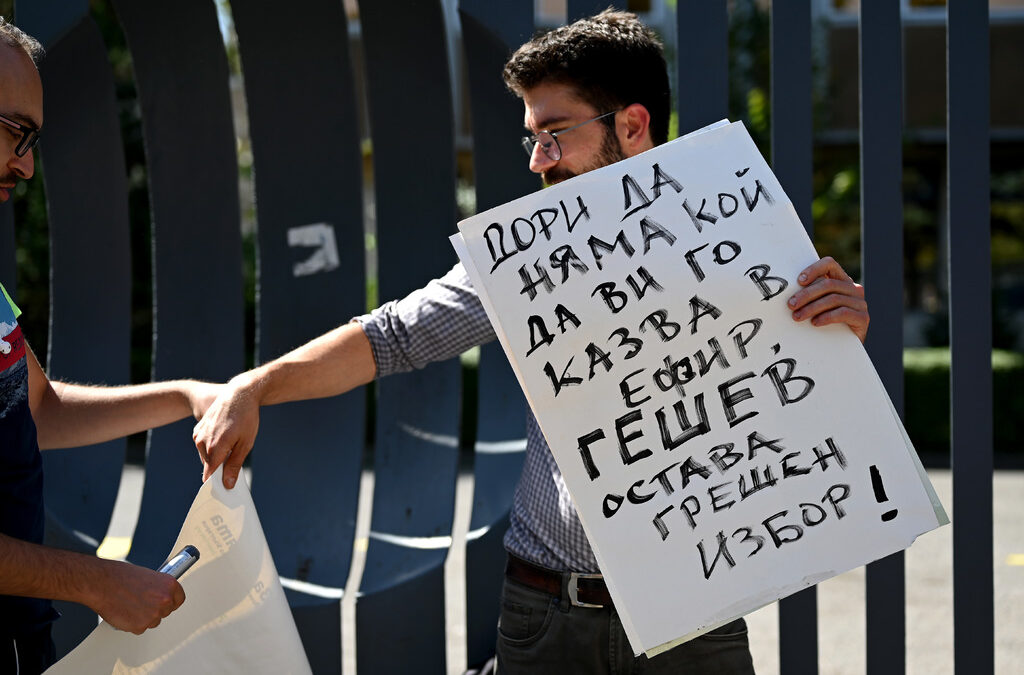 ДОРИ ДА
НЯМА КОЙ
ДА ВИ ГО
КАЗВА В
ЕФИР,
ГЕШЕВ
ОСТАВА
ГРЕШЕН
ИЗБОР!